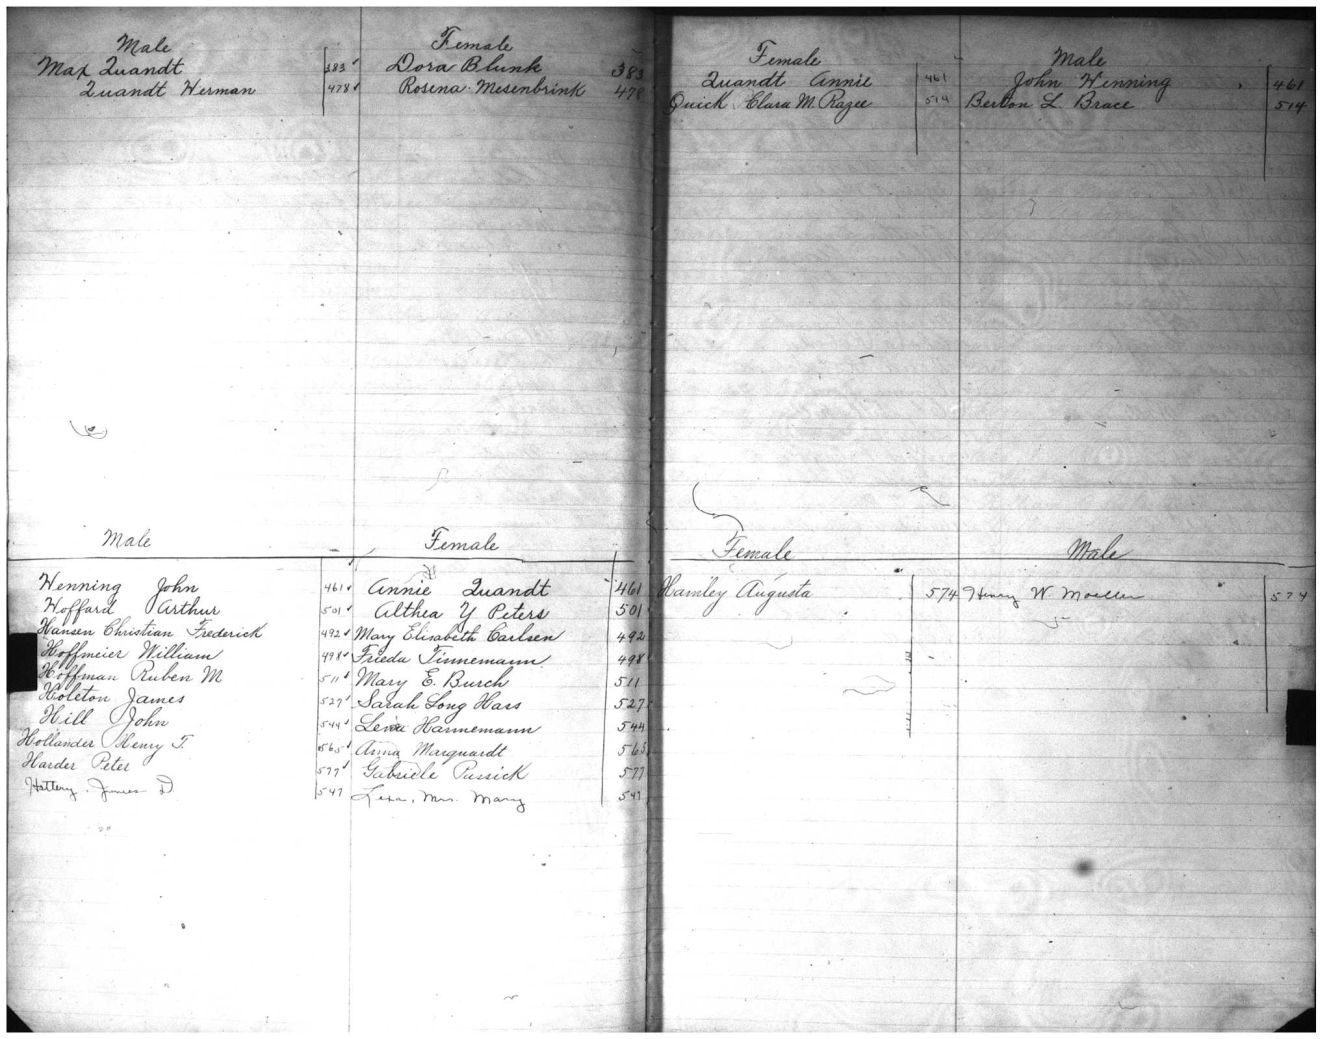 Male Female
Max Quandt 383 Dora Blunk 383
Quandt Herman 478 Rosena Mesenbrink 478
Female Male
Quandt Annie 461 John Henning 461
Quick Clara M. Razee 514 Berton L Brace 514
Male Female
Henning John 461 Annie Quandt 461
Hoffard Arthur 501 Althea Y Peters 501
Hansen Christian Frederick 492 Mary Elisabeth Carlsen 492
Hoffmeier William 498 Frieda Tinnemann 498
Hoffman Ruben M 511 Mary E. Burch 511
Holeton James 527 Sarah Long Hass 527
Hill John 544 Lena Hannemann 544
Hollander Henry T. 565 Anna Marquardt 565
Harder Peter 577 Gabriele Pussick 577
Hattery, James D 547 Mrs. Mary 547
Female Male
Hamley Augusta 574 Henry W. Moeller 574